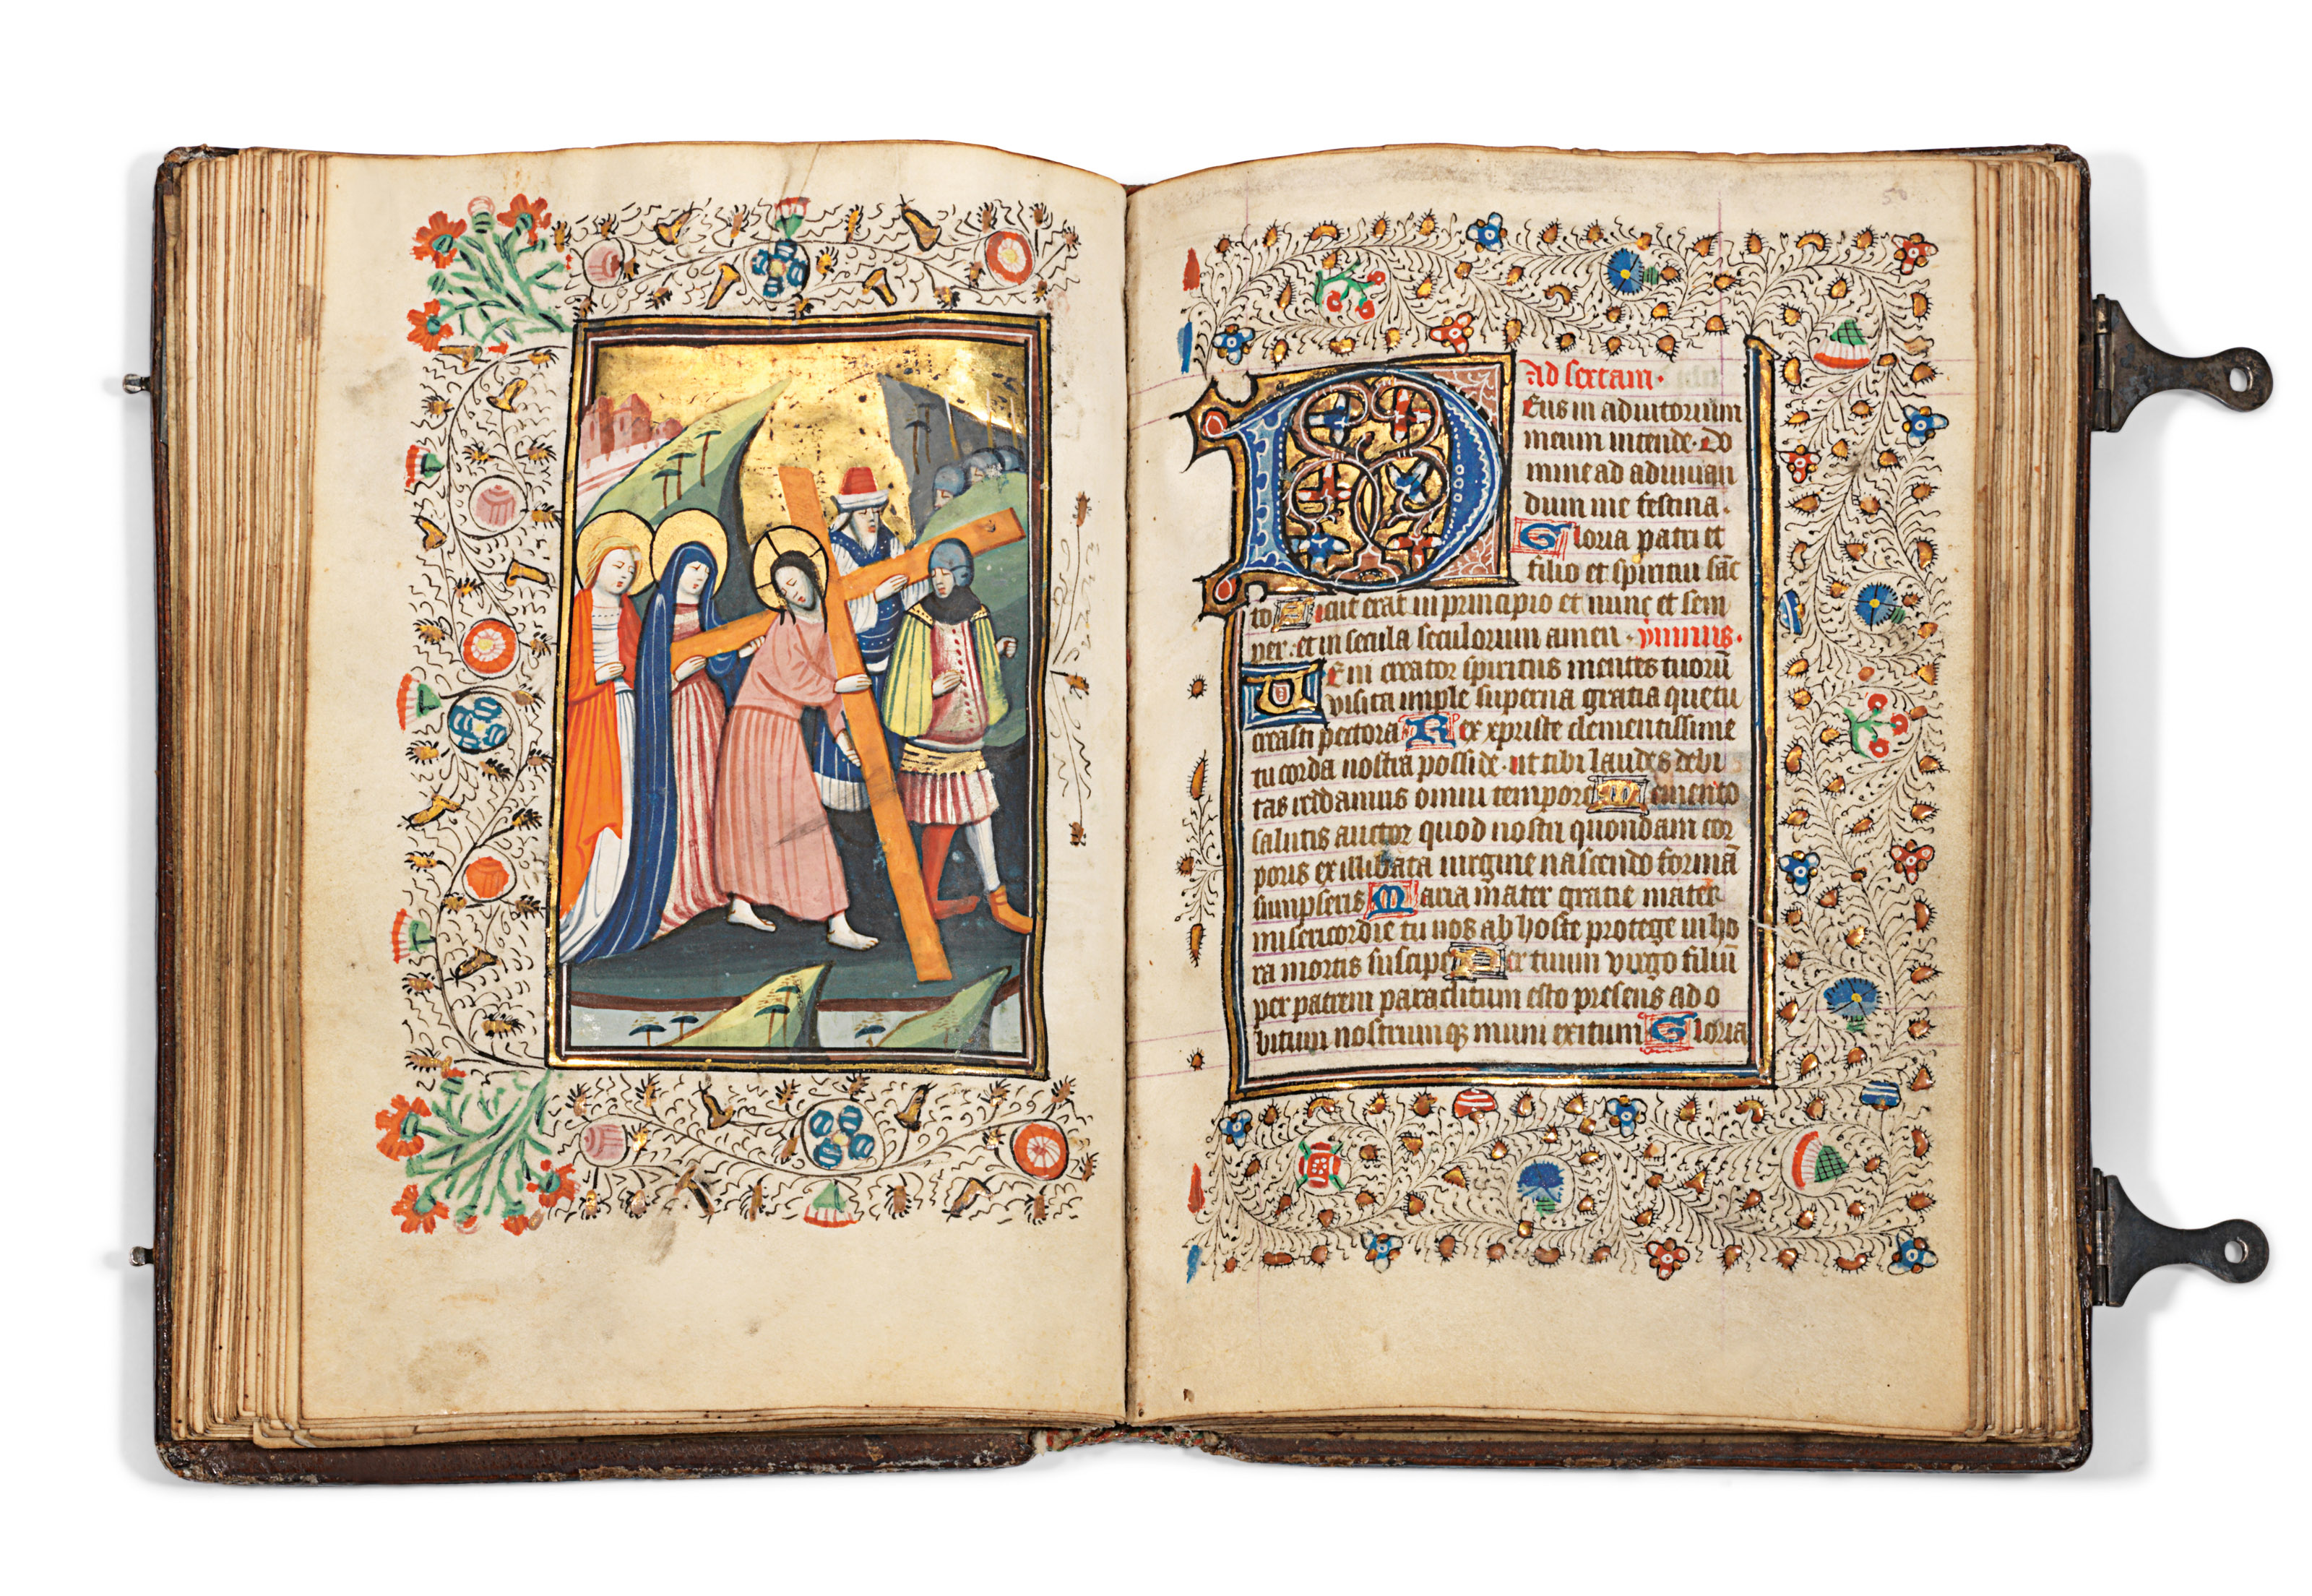 50
Ad sextam·
Deus in adiutorium
meum intende· Do
mine ad adiuuan
dum me festina·
Gloria patri et
filio et spiritui sanc
to Sicut erat in principio et nunc et sem
per· et in secula seculorum amen· ympnus·
Ueni creator spiritus mentes tuorū
visita imple superna gratia que tu
creasti pectora Rex xpriste clementissime
tu corda nostra posside· ut tibi laudes debi
tas reddamus omni tempore Memento
salutis auctor quod nostri quondam cor
poris ex illibata uirgine nascendo formā
sumpseris Maria mater gratie mater
misericordie tu nos ab hoste protege in ho
ra mortis suscipe Per tuum virgo filiū
per patrem paraclitum esto presens ad o
bitum nostrumqꝫ muni exitum Gloria